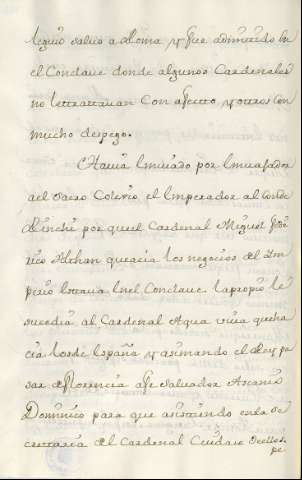 leguio salvo a Roma, y fue admitido en
el Conclave donde algunos Cardenales
no le trattavan con afecto, y otros con
mucho despego.
Havia Imviado por Embaxador
del Sacro Colexio, el Emperador al Conde
Kinchi por que el Cardenal Miguel Fede
rico Althan que acia los negocios del Im
perio estava en el Conclave. lo propio le
sucedia al Cardenal Aqua viva que ha
cia los de España, y asimando el Rey pa
sar de Florencia a fr. Salvador Ascanio
Dominico para que asistiendo en la Se
crettaria del Cardenal Cuidase de ellos
pe